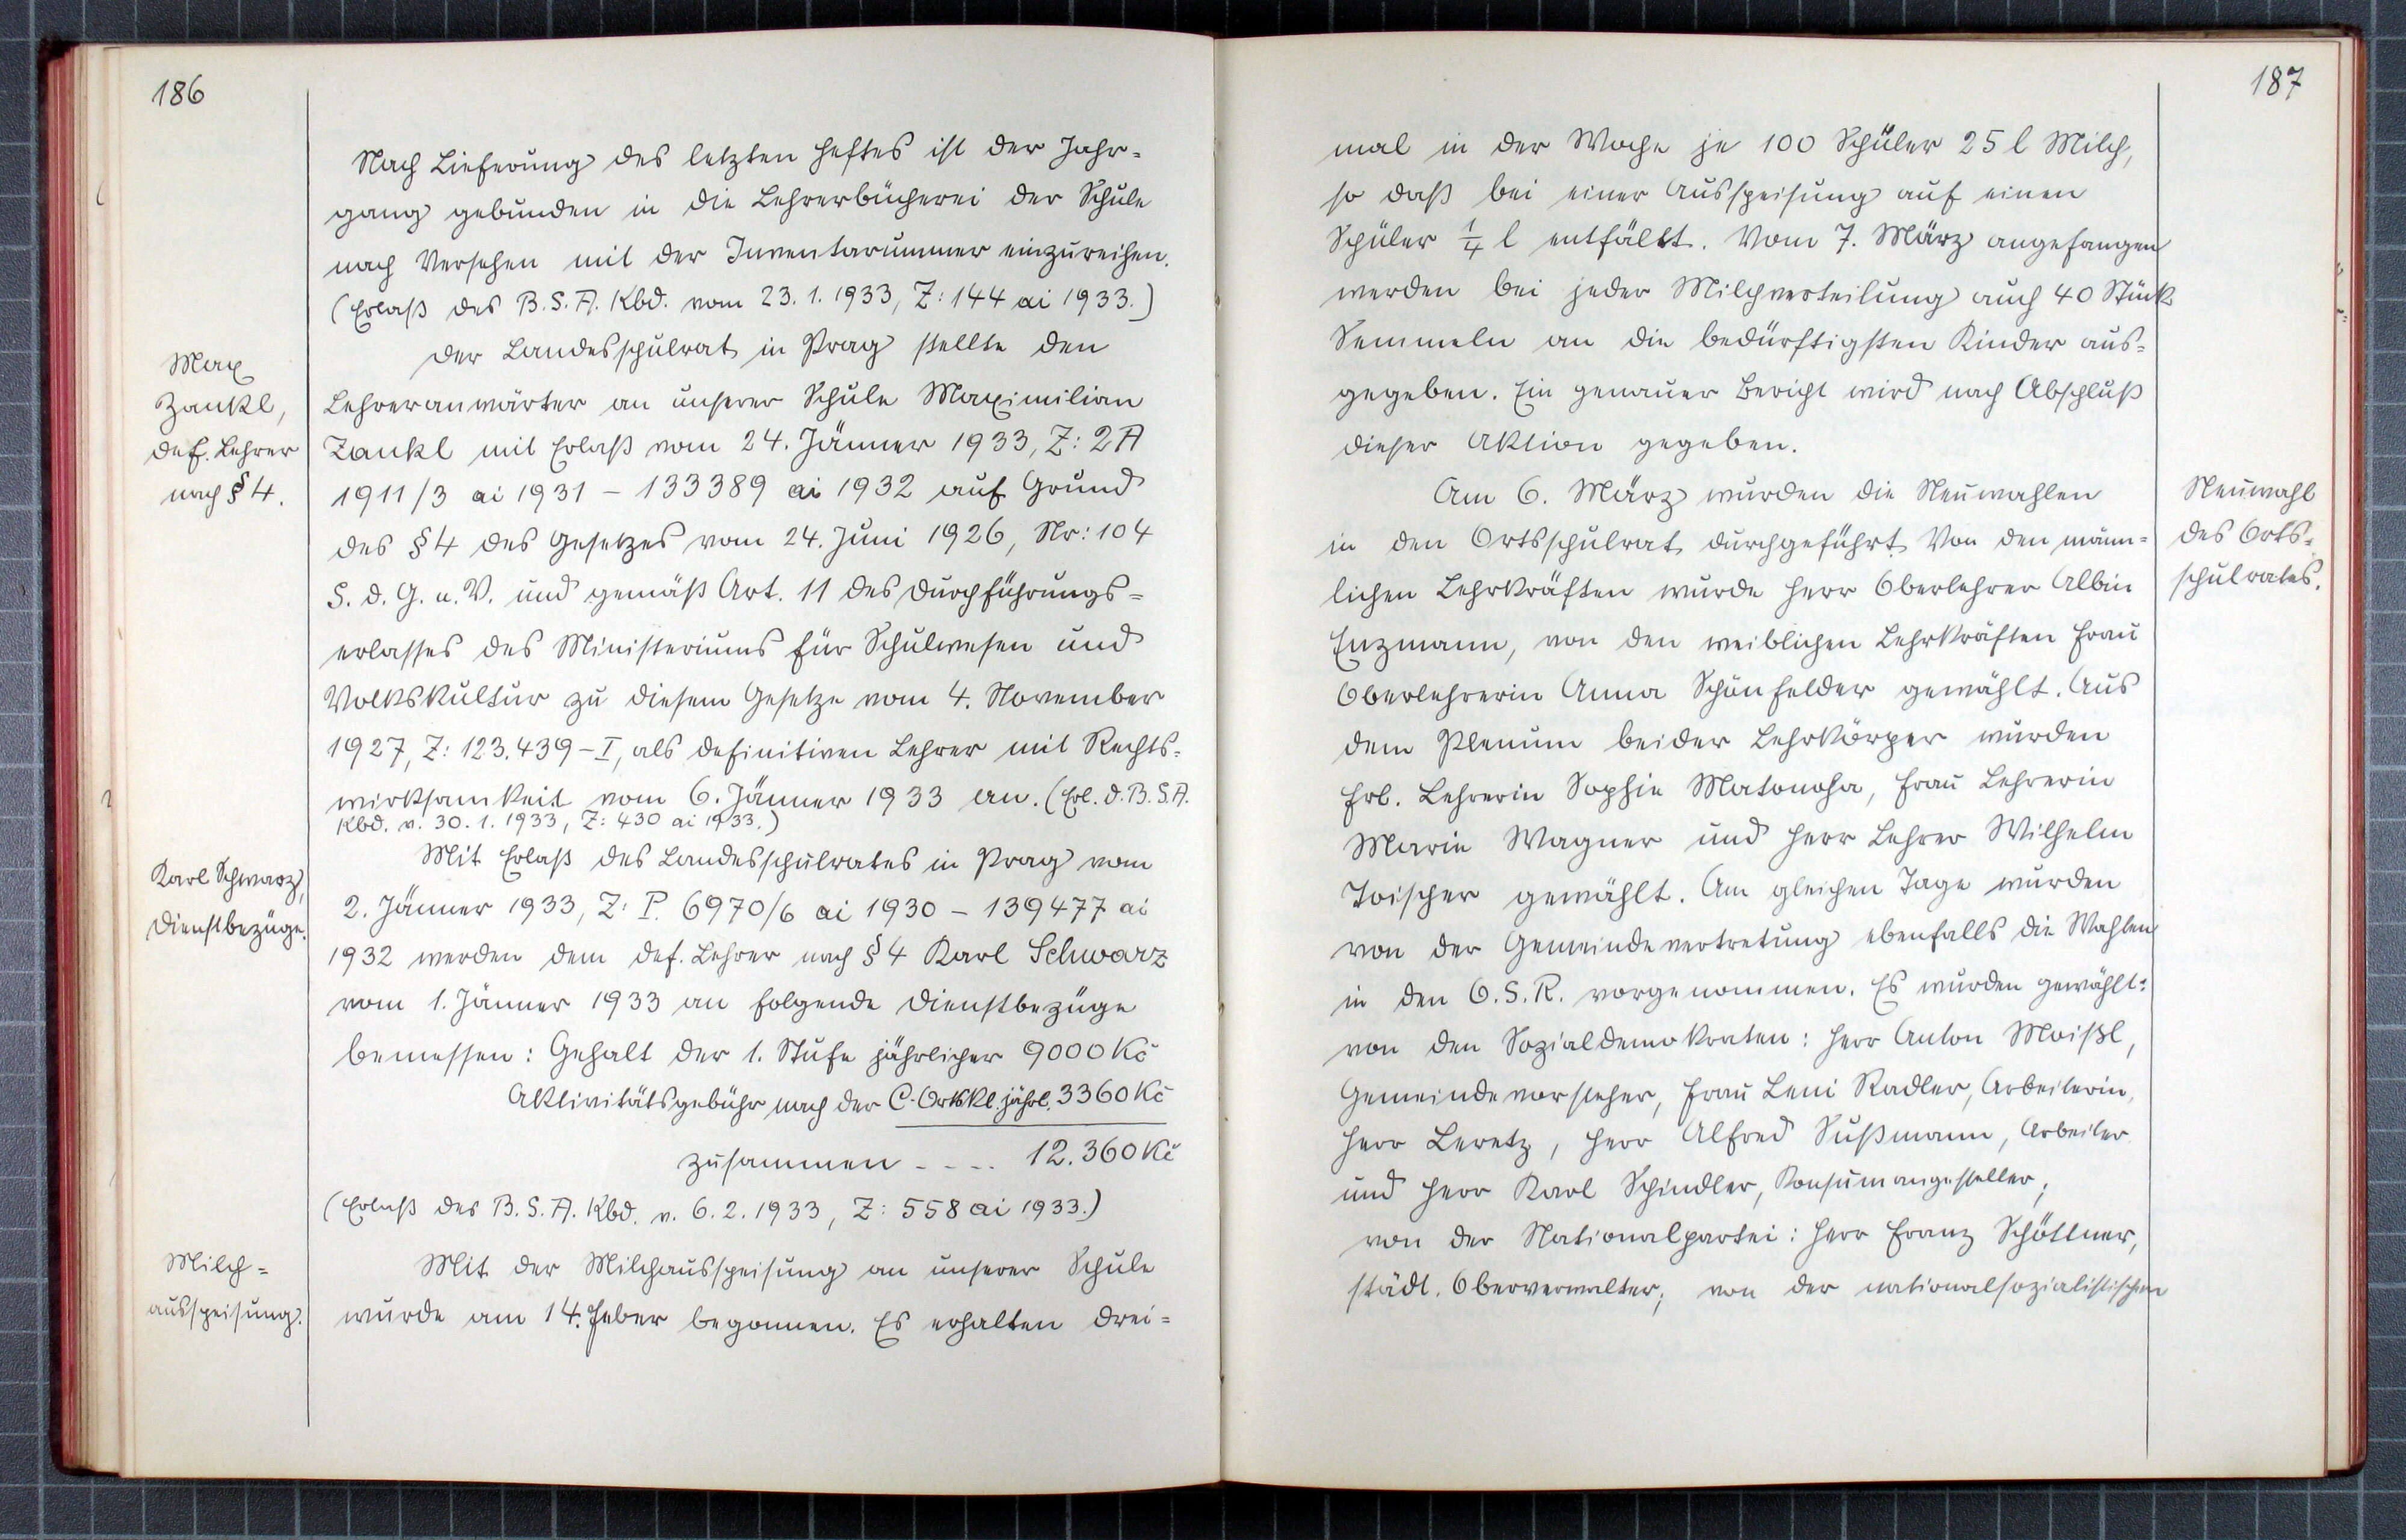 186
Nach Lieferung des letzten Heftes ist der Jahr-
gang gebunden in die Lehrerbücherei der Schule
nach Versehen mit der Inventarnummer einzureihen.
(Erlaß des B.S.A. Kbd. vom 23.1.1933, Z: 144 ai 1933.)
Max
Zankl,
def. Lehrer
nach § 4.
Der Landesschulrat in Prag stellte den
Lehreranwärter an unserer Schule Maximilian
Zankl mit Erlaß vom 24. Jänner 1933, Z: 2A
1911/3 ai 1931 – 133389 ai 1932 auf Grund
des § 4 des Gesetzes vom 24. Juni 1926, Nr: 104
S. d. G. u. V. und gemäß Art. 11 des Durchführungs=
erlasses des Ministeriums für Schulwesen und
Volkskultur zu diesem Gesetze vom 4. November
1927, Z: 123.439–I, als definitiven Lehrer mit Rechts=
wirksamkeit vom 6. Jänner 1933 an. (Erl. d. B.S.A.
Kbd. v. 30.1.1933, Z: 430 ai 1933.)
Karl Schwarz,
Dienstbezüge.
Mit Erlaß des Landesschulrates in Prag vom
2. Jänner 1933, Z: P. 6970/6 ai 1930 – 139477 ai
1932 werden dem def. Lehrer nach § 4 Karl Schwarz
vom 1. Jänner 1933 an folgende Dienstbezüge
bemessen: Gehalt der 1. Stufe jährlicher 9000 Kč
Aktivitätsgebühr nach der C-Ortskl. jährl. 3360 Kč
zusammen - - - - 12.360 Kč
(Erlaß des B.S.A. Kbd. v. 6.2.1933, Z: 558 ai 1933.)
Milch=
ausspeisung.
Mit der Milchausspeisung an unserer Schule
wurde am 14. Feber begonnen. Es erhalten drei=
187
mal in der Woche je 100 Schüler 25 l Milch,
so daß bei einer Ausspeisung auf einen
Schüler 1/4 l entfällt. Vom 7. März angefangen
werden bei jeder Milchverteilung auch 40 Stück
Semmeln an die bedürftigsten Kinder aus=
gegeben. Ein genauer Bericht wird nach Abschluß
dieser Aktion gegeben.
Neuwahl
des Orts=
schulrates.
Am 6. März wurden die Neuwahlen
in den Ortsschulrat durchgeführt. Von den männ=
lichen Lehrkräften wurde Herr Oberlehrer Albin
Enzmann, von den weiblichen Lehrkräften Frau
Oberlehrerin Anna Schönfelder gewählt. Aus
dem Plenum beider Lehrkörper wurden
Frl. Lehrerin Sophie Matonoha, Frau Lehrerin
Marie Wagner und Herr Lehrer Wilhelm
Toischer gewählt. Am gleichen Tage wurden
von der Gemeindevertretung ebenfalls die Wahlen
in den O.S.R. vorgenommen. Es wurden gewählt:
von den Sozialdemokraten: Herr Anton Moißl,
Gemeindevorsteher, Frau Leni Radler, Arbeiterin,
Herr Leretz, Herr Alfred Sußmann, Arbeiter
und Herr Karl Schindler, Konsumangesteller;
von der Nationalpartei: Herr Franz Schöttner,
städt. Oberverwalter; von der nationalsozialistischen